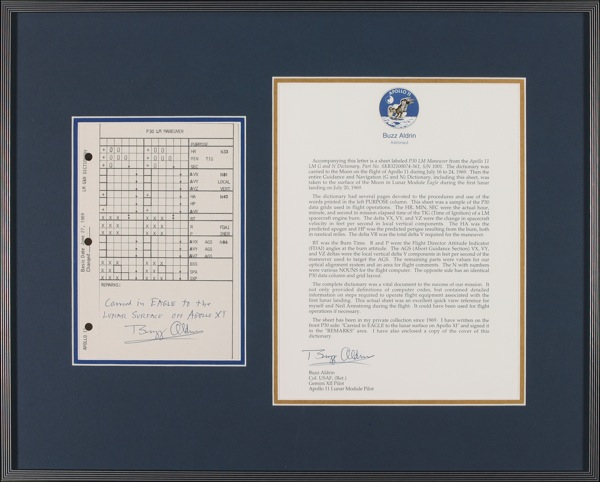 P30 LM MANEUVER
PURPOSE
+ 0 0 + 0 0 HR N33
+ 0 0 0 + 0 0 0 MIN TIG
+ 0 + 0 SEC
ΔVX N81
ΔVY LOCAL
ΔVZ VERT
+ + HA N42
HP
+ + ΔVR
X X X X X X BT
X X X X X X R FDAI
X X X X X X P INER
ΔVX AGS N86
ΔVY AGS
ΔVZ AGS
REMARKS:
LM G&N DICTIONARY
Basic Date June 27, 1969
Changed
APOLLO
Carried in EAGLE to the
LUNAR SURFACE ON APOLLO XI
Buzz Aldrin
APOLLO 11
Buzz Aldrin
Astronaut
Accompanying this letter is a sheet labeled P30 LM Maneuver from the Apollo 11
LM G and N Dictionary, Part No. SKB32100074-361, S/N 1001. The dictionary was
carried to the Moon on the flight of Apollo 11 during July 16 to 24, 1969. Then the
entire Guidance and Navigation (G and N) Dictionary, including this sheet, was
taken to the surface of the Moon in Lunar Module Eagle during the first lunar
landing on July 20, 1969.
The dictionary had several pages devoted to the procedures and use of the
words printed in the left PURPOSE column. This sheet was a sample of the P30
data grids used in flight operations. The HR, MIN, SEC, were the actual hour,
minute, and second in mission elapsed time of the TIG (Time of Ignition) of a LM
spacecraft engine burn. The delta VX, VY, and VZ were the change in spacecraft
velocity in feet per second in local vertical components. The HA was the
predicted apogee and HP was the predicted perigee resulting from the burn, both
in nautical miles. The delta VR was the total delta V required for the maneuver.
BT was the Burn Time. R and P were the Flight Director Attitude Indicator
(FDAI) angles at the burn attitude. The AGS (Abort Guidance Section) VX, VY,
and VZ deltas were the local vertical delta V components in feet per second of the
maneuver used to target the AGS. The remaining parts were values for our
optical alignment system and an area for flight comments. The N with numbers
were various NOUNS for the flight computer. The opposite side has an identical
P30 data column and grid layout.
The complete dictionary was a vital document to the success of our mission. It
not only provided definitions of computer codes, but contained detailed
information on steps required to operate flight equipment associated with the
first lunar landing. This actual sheet was an excellent quick reference for
myself and Neil Armstrong during the flight. It could have been used for flight
operations if necessary.
The sheet has been in my private collection since 1969. I have written on the
front P30 side: "Carried in EAGLE to the lunar surface on Apollo XI" and signed it
in the "REMARKS" area. I have also enclosed a copy of the cover of this
dictionary.
Buzz Aldrin
Buzz Aldrin
Col. USAF, (Ret.)
Gemini XII Pilot
Apollo 11 Lunar Module Pilot